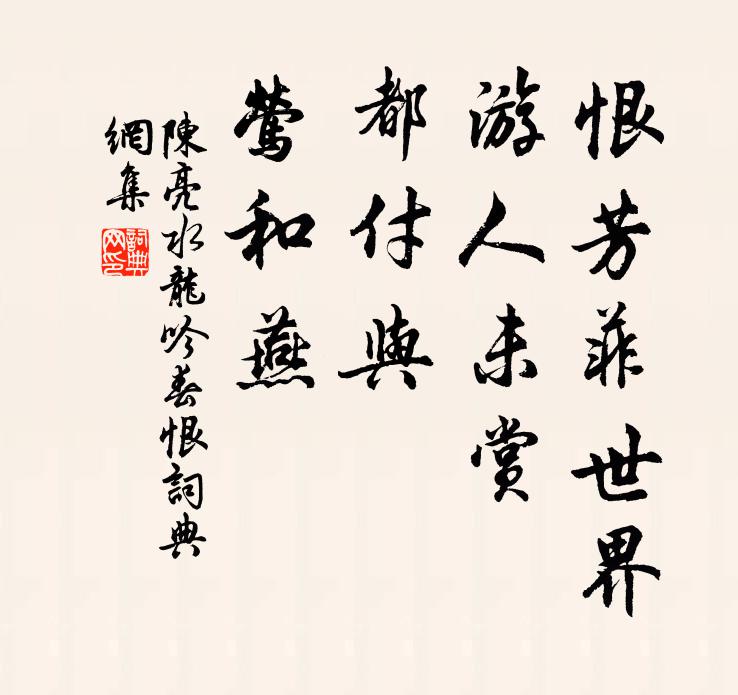 恨芳菲世界
游人未賞
都付與
鶯和燕
陳亮水龍吟春恨詞典
網集
詞典
网印